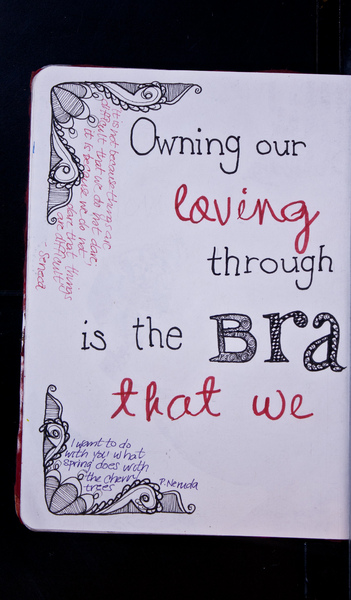 Owning our
loving
through
is the Bra
that we
It is not because things are
difficult that we do not dare,
it is because we do not
dare that things
are difficult
- Seneca
I want to do
with you what
spring does with
the cherry
trees P. Neruda